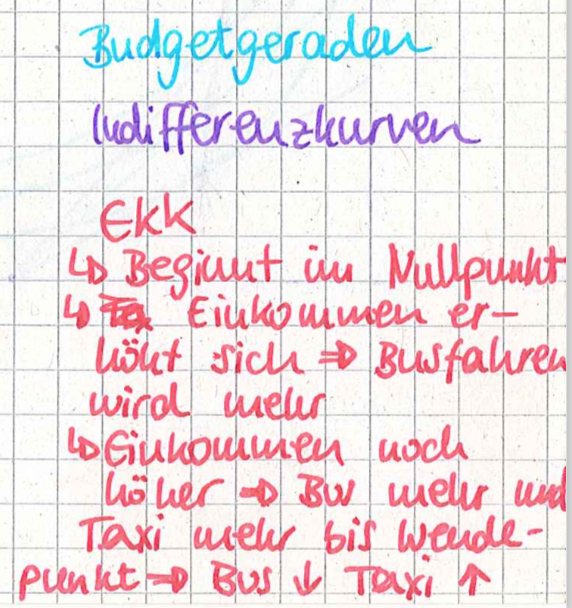 Budgetgeraden
Indifferenzkurven
EKK
↳ Beginnt im Nullpunkt
↳ Einkommen er-
höht sich ⇒ Busfahren
wird mehr
↳ Einkommen noch
höher ⇒ Bus mehr und
Taxi mehr bis Wende-
punkt ⇒ Bus ↓ Taxi ↑